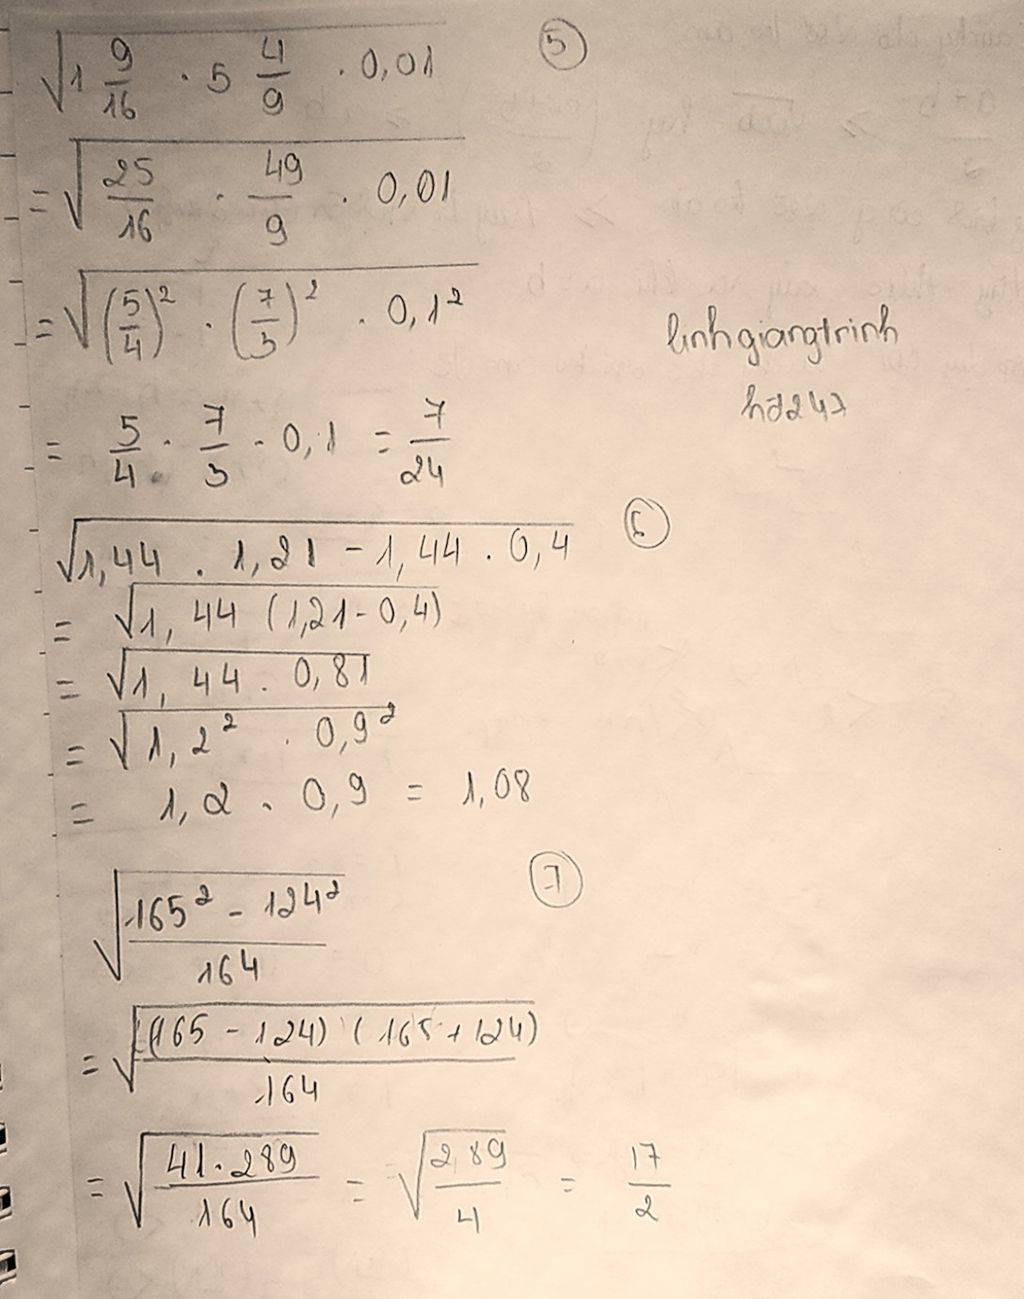 √(1 9/16 · 5 4/9 · 0,01) (5)
= √(25/16 · 49/9 · 0,01)
= √((5/4)² · (7/3)² · 0,1²)
linhgiangtrinh
h7247
= 5/4 · 7/3 · 0,1 = 7/24
√(1,44 . 1,21 - 1,44 . 0,4) (6)
= √(1,44 (1,21 - 0,4))
= √(1,44 . 0,81)
= √(1,2² . 0,9²)
= 1,2 . 0,9 = 1,08
√((165² - 124²)/164) (7)
= √((165 - 124) (165 + 124)/164)
= √(41 · 289/164) = √(289/4) = 17/2